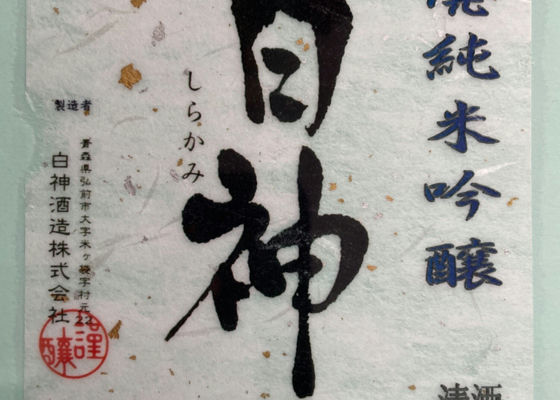 純米吟醸
白神
しらかみ
製造者
青森県弘前市大字米ヶ袋字村元22
白神酒造株式会社
謹醸
清酒